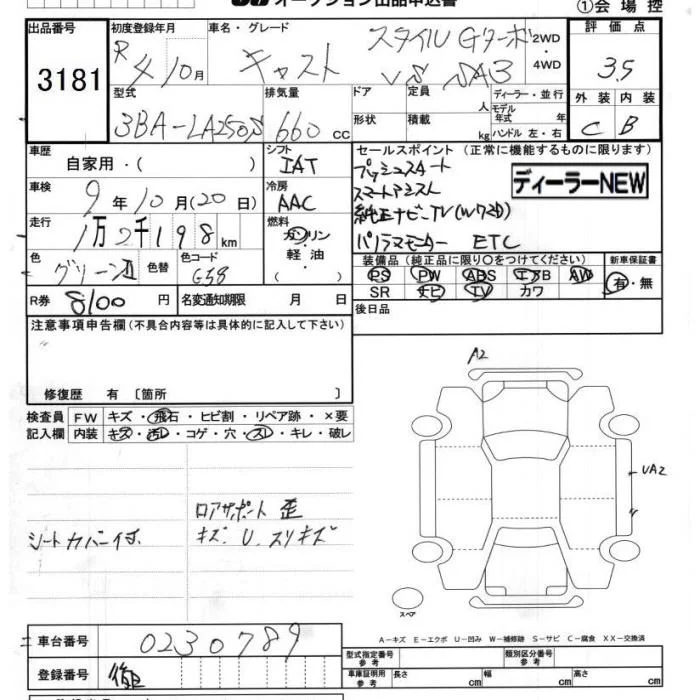 オークション出品申込書
①会場控
出品番号 3181
初度登録年月 R4 10月
車名・グレード キャスト スタイルGターボ VS SA3
2WD・4WD
評価点 3.5
外装 C 内装 B
型式 3BA-LA250S
排気量 660cc
ドア形状
定員 人
積載 kg
ディーラー・並行
モデル年式 年
ハンドル 左・右
車歴 自家用・( )
シフト IAT
セールスポイント (正常に機能するものに限ります)
プッシュスタート
スマートアシスト
純正ナビ-TV(W72D)
パノラマモニター ETC
ディーラーNEW
車検 9年10月(20日)
冷房 AAC
走行 1万2千198km
燃料 ガソリン・軽油・( )
色 グリーンⅡ 色替
色コード G58
装備品 (純正品に限り○をつけてください)
新車保証書 有・無
PS PW ABS エアB AW
SR ナビ TV カワ
R券 8100円
名変通知期限 月 日
後日品
注意事項申告欄(不具合内容等は具体的に記入して下さい)
修復歴 有 〔箇所 〕
検査員記入欄
FW キズ・飛石・ヒビ割・リペア跡・×要
内装 キズ・汚レ・コゲ・穴・スレ・キレ・破レ
シートカバー付
ロアサポート歪
キズ、U、スリキズ
A2
UA2
〃
スペア
A-キズ E-エクボ U-凹み W-補修跡 S-サビ C-腐食 XX-交換済
車台番号 0230789
登録番号
型式指定番号 参考
類別区分番号 参考
車庫証明用 参考 長さ cm 幅 cm 高さ cm